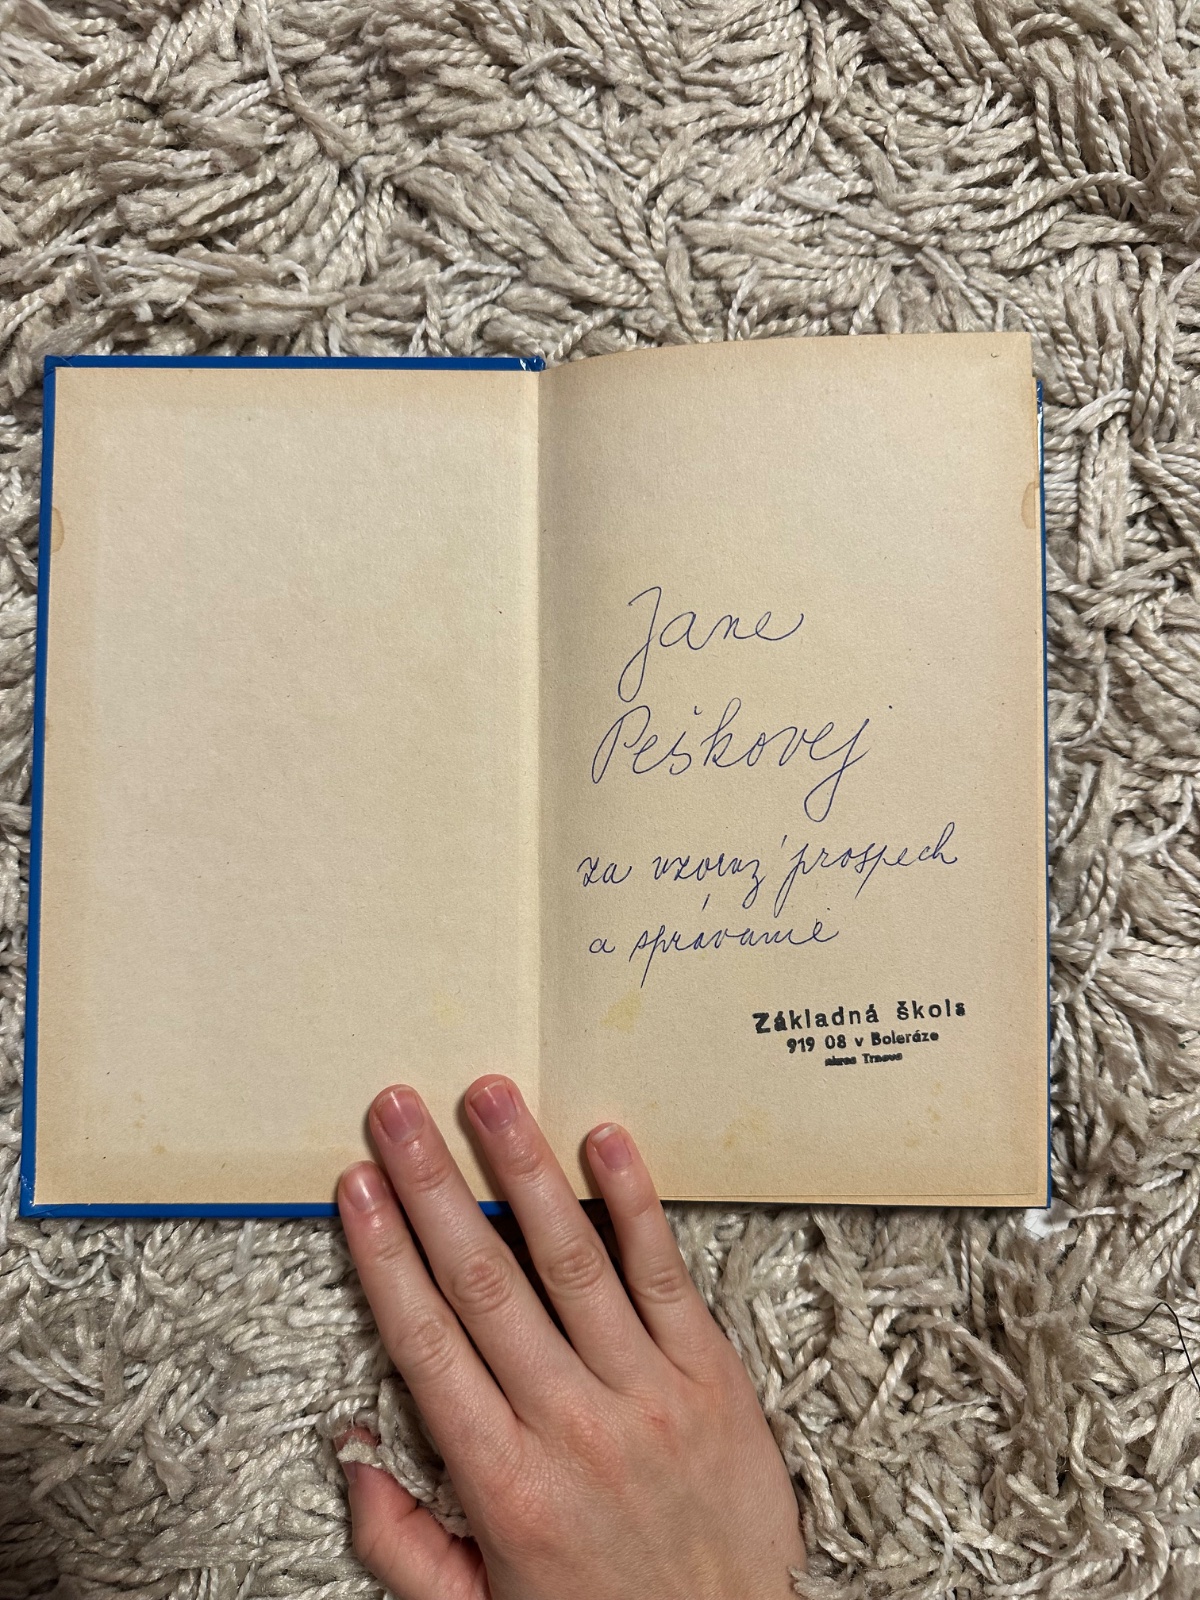 Jane
Peškovej
za vzorný prospech
a správanie
Základná škola
919 08 v Boleráze
okres Trnava